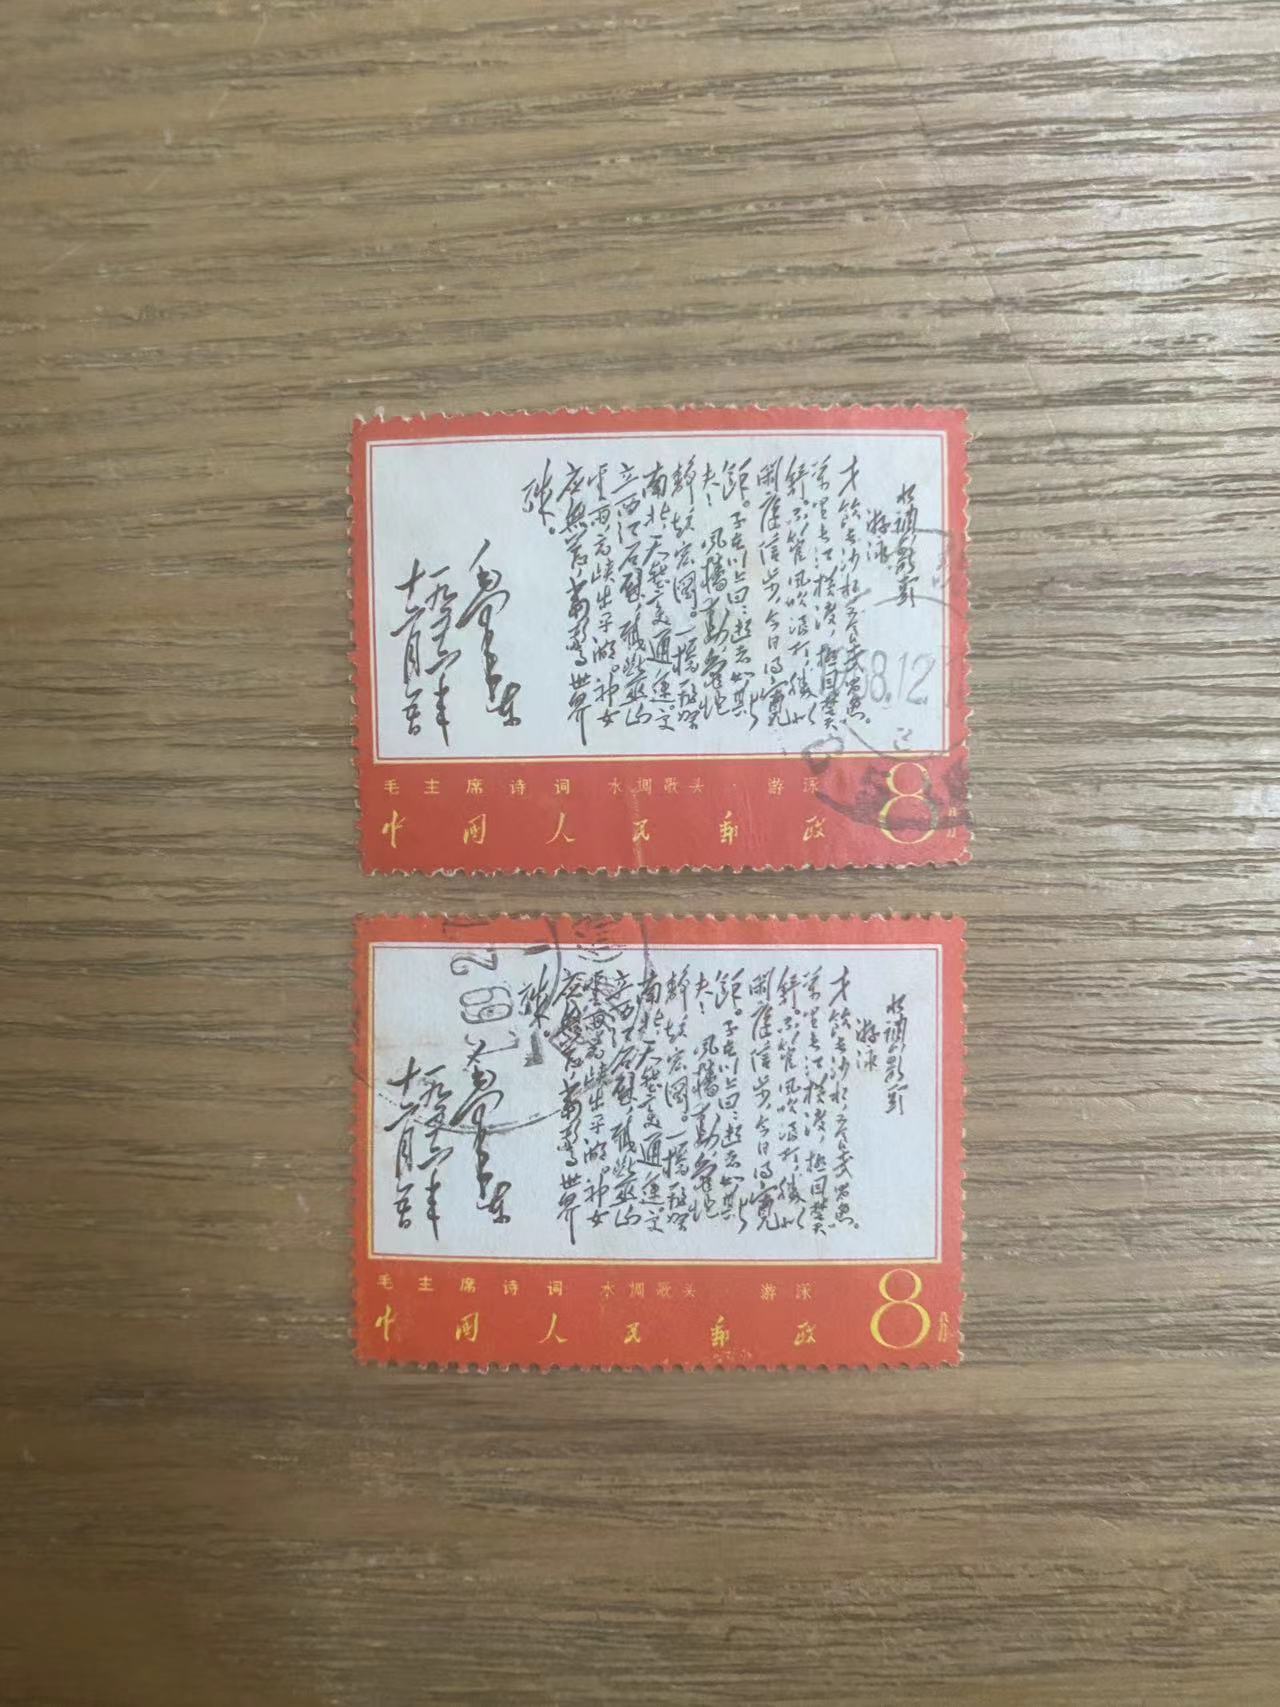 水调歌头
游泳
才饮长沙水，又食武昌鱼。
万里长江横渡，极目楚天
舒。不管风吹浪打，胜似
闲庭信步，今日得宽
馀。子在川上曰：逝者如斯
夫！风樯动，龟蛇
静，起宏图。一桥飞架
南北，天堑变通途。更
立西江石壁，截断巫山
云雨，高峡出平湖。神女
应无恙，当惊世界
殊。
毛泽东
一九五六年
十二月五日
8.12
毛主席诗词 水调歌头·游泳
中国人民邮政 8分
水调歌头
游泳
才饮长沙水，又食武昌鱼。
万里长江横渡，极目楚天
舒。不管风吹浪打，胜似
闲庭信步，今日得宽
馀。子在川上曰：逝者如斯
夫！风樯动，龟蛇
静，起宏图。一桥飞架
南北，天堑变通途。更
立西江石壁，截断巫山
云雨，高峡出平湖。神女
应无恙，当惊世界
殊。
毛泽东
一九五六年
十二月五日
毛主席诗词 水调歌头·游泳
中国人民邮政 8分